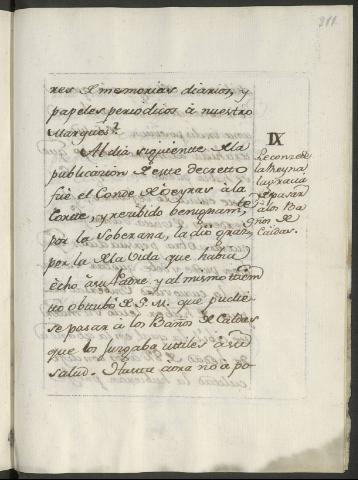 211.
res de memorias diarios, y
papeles periodicos à nuestro
Marques.
Al dia siguiente de la
publicacion de este decretto
fuè el Conde de Oeyras à la
Corte, y recibido benignam.te
por la Soberana, la diò gracias
por la de la Vida que havia
echo à su Padre, y al mismo tiem
po obtubo de S. M. que pudie-
se pasar à los Baños de Caldas
que los jusgaba uttiles à su
salud. Nunca aora no a po-
IX
Reconcede
la Reyna
la gracia
de pasar
à los Ba
ños de
Caldas.